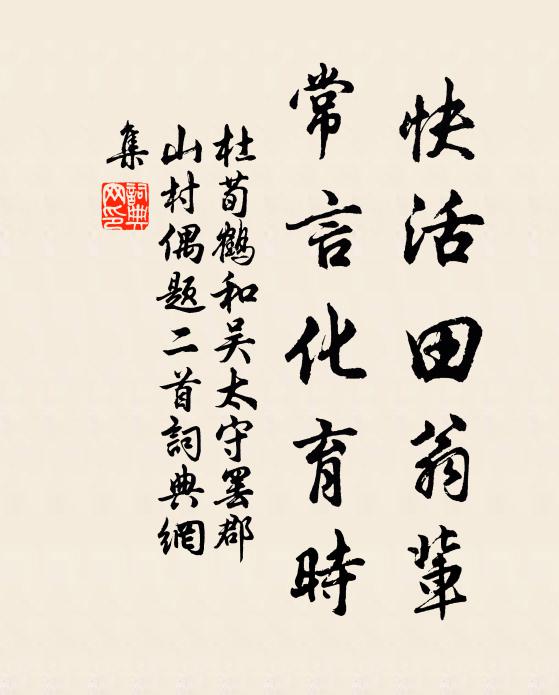 快活田翁輩
常言化育時
杜荀鶴和吴太守罢郡
山村偶题二首詞典網
集
詞典
网印